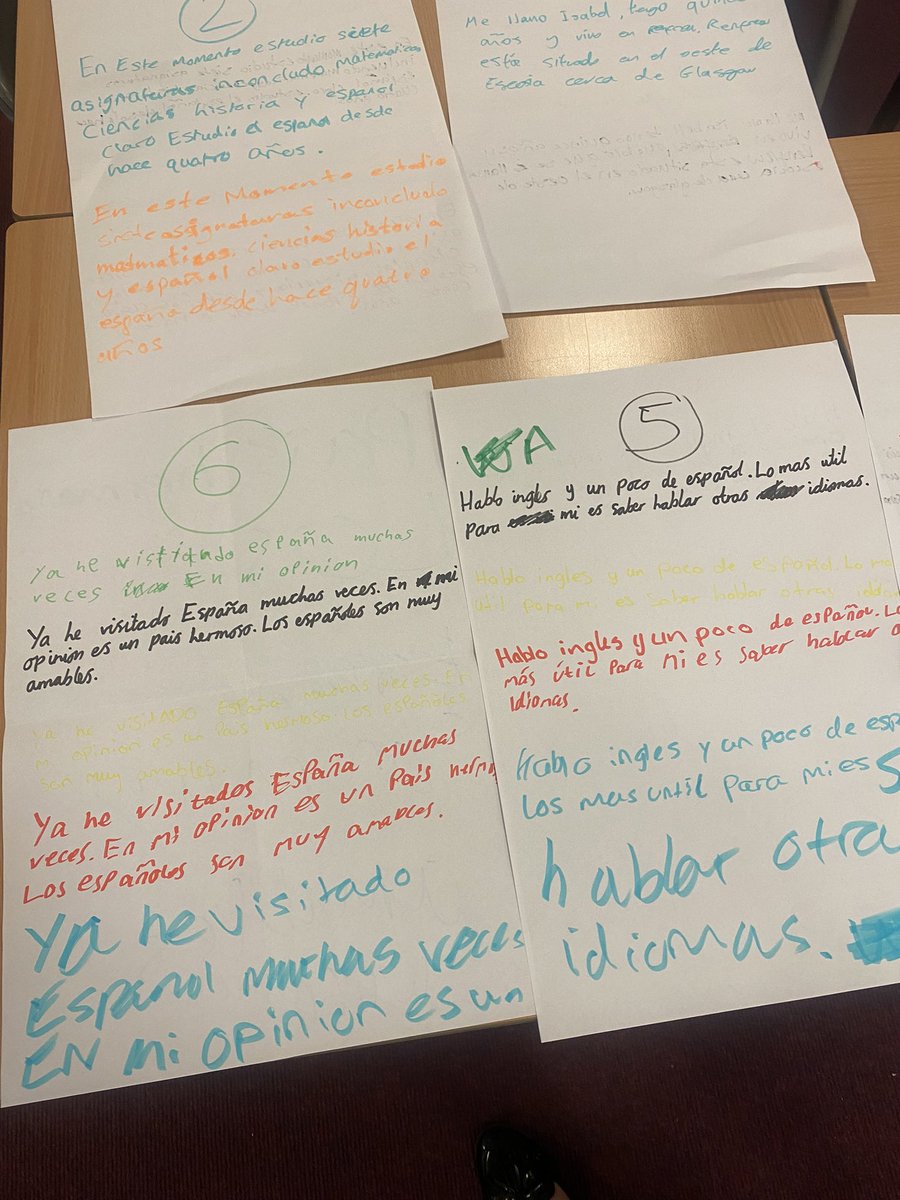 2
En Este momento estudio siete
asignaturas inconcludo matematicas
Ciencias historia y español
claro Estudio el espana desde
hace quatro años.
En este Momento estudio
siete asignaturas inconcludo
matmaticas. ciencias historia
y español claro estudio el
espana desde hace quatro
años
Me llamo Isabel, tengo
años y vivo en Renfrew
está situado en el oeste de
Escocia cerca de Glasgow
6
Ya he vistitado españa muchas
veces En mi opinion
Ya he visitado España muchas veces. En mi
opinion es un pais hermoso. Los españoles son muy
amables.
Ya he visitado España muchas veces. En
mi opinion es un Pais hermoso Los españoles
son muy amables.
Ya he visitados España muchas
veces. En mi opinion es un Pais
Los españoles son muy amables.
Ya he visitado
Español muchas veces
EN mi opinion es un
5
A
Hablo ingles y un poco de español. Lo mas util
Para mi es saber hablar otras idiomas.
Hablo ingles y un poco de español. Lo
util Para mi es saber hablar otras
Hablo ingles y un poco de español.
más útil Para mi es saber hablar
idiomas.
Hablo ingles y un poco de
Los mas until para mi es
hablar otra
idiomas.